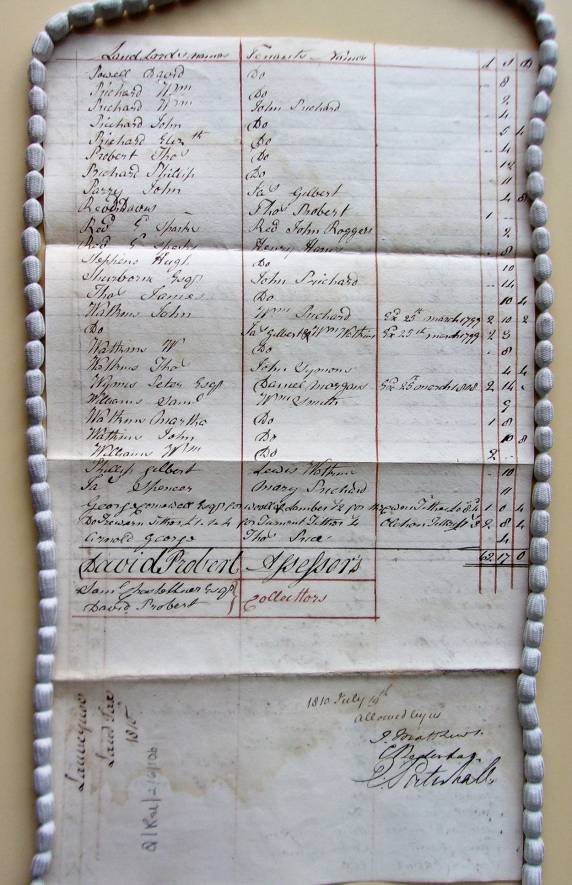 Landlords names Tenants Names £ s d
Powell David Do - 8
Prichard Wm Do 2
Prichard Wm John Prichard - 4
Prichard John Do 5 4
Prichard Elizth Do - 4
Probert Thos Do
Prichard Phillip Do 11
Parry John Jas Gilbert 4 8
Thos Probert 1 - -
Revd E Sparks Red John Roggers 2
Revd E Sparks Henry - 8
Stephens Hugh Do 10
Sherborne Esqr John Prichard - 14
Thos James Do 10 4
Watkins John Wm Prichard Ex 25th march 1799 2 10 2
Do Jas Gilbert & Wm Watkins Ex 25th march 1799 2 3
Watkins W Do - 8
Watkins Thos John Symons 4 4
Peter Esqr Daniel Morgans Ex 25th march 2 14
Williams Saml Wm Smith 9
Watkins Martha Do 1 8
Watkins John Do 10 8
Williams Wm Do 2 - -
Phillip Gilbert Lewis Watkins - 10
Jas Spencer Mary Prichard 11
George Esqr for wool & Lambs 0 4
Do 2 8 4
Arnold George Thos Price 4
David Probert Assessors 62 17 0
Saml Esqr
David Probert } Collectors
1810 July
allowed by us
Land Tax
Q/Rel/2/9/26